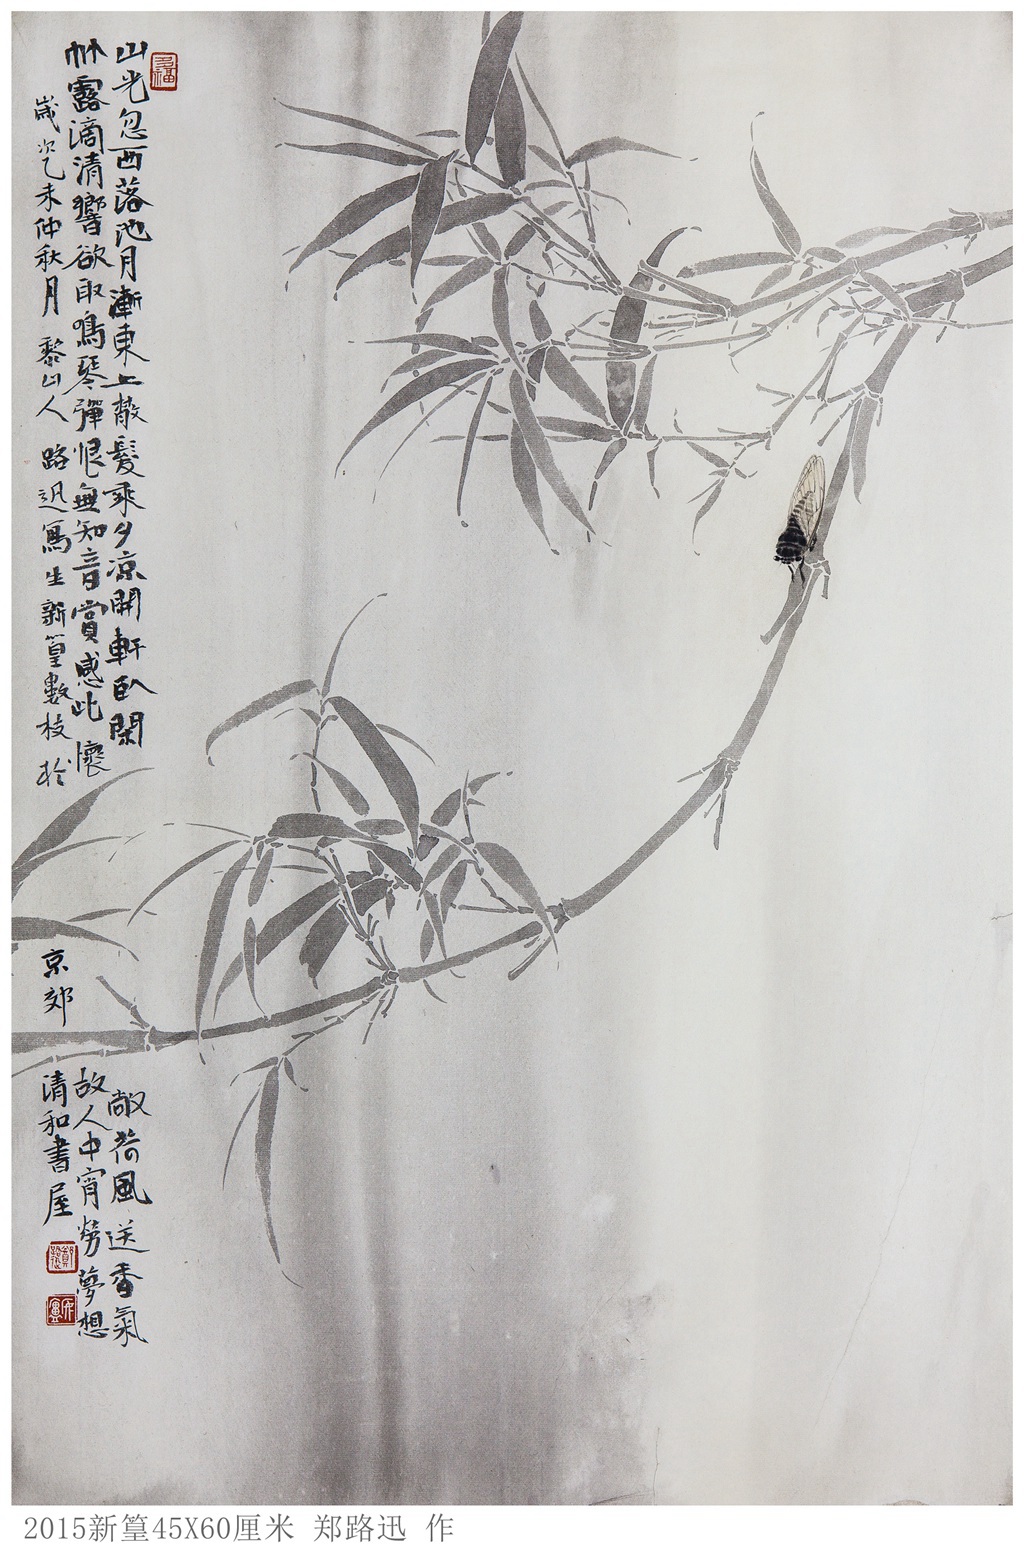 多福
山光忽西落池月漸東上散髮乘夕凉開軒臥閑敞荷風送香氣
竹露滴清響欲取鳴琴彈恨無知音賞感此懷故人中宵勞夢想
歲次乙未仲秋月 黎山人 路迅寫生新篁數枝於京郊清和書屋
2015新篁45X60厘米 郑路迅 作